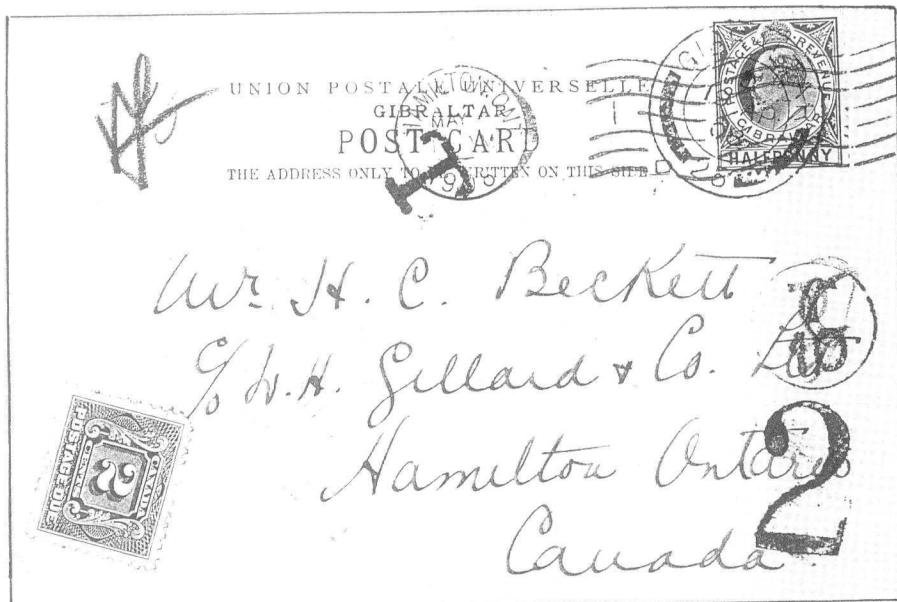 UNION POSTALE UNIVERSELLE
GIBRALTAR
POST CARD
THE ADDRESS ONLY TO BE WRITTEN ON THIS SIDE
POSTAGE & REVENUE
GIBRALTAR
HALFPENNY
HAMILTON, ONT
MAY
T
Mr. H. C. Beckett
c/o W. H. Gillard & Co. Ltd
Hamilton Ontario
Canada
2
CANADA
2
POSTAGE DUE